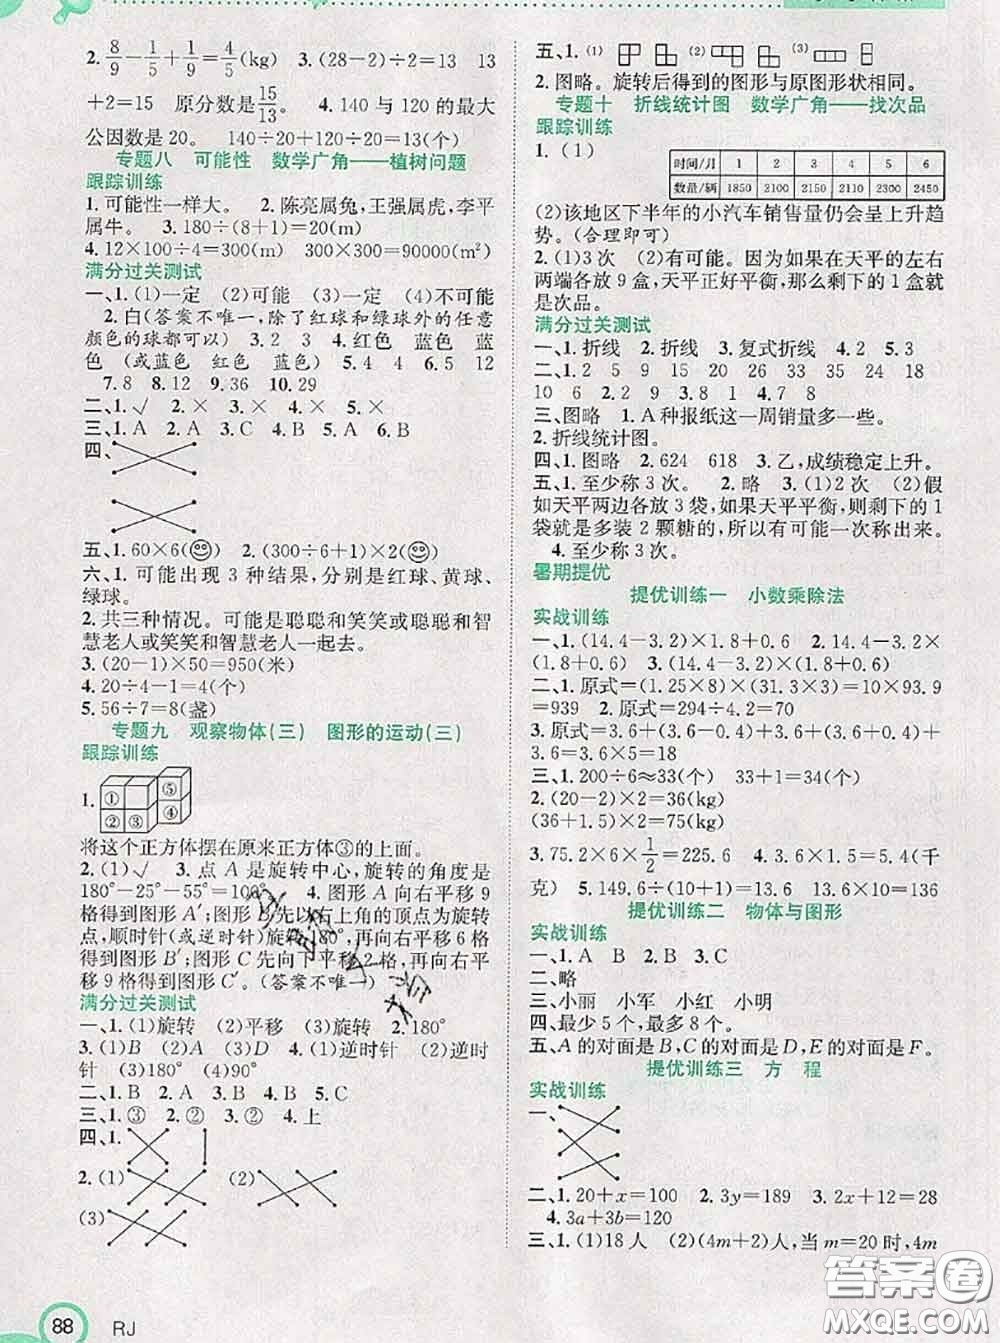 2. 8/9－1/5＋1/9＝4/5(kg)　3.(28－2)÷2＝13　13
＋2＝15　原分数是15/13。　4. 140 与 120 的最大
公因数是 20。　140÷20＋120÷20＝13(个)
专题八　可能性　数学广角——植树问题
跟踪训练
1. 可能性一样大。　2. 陈亮属兔,王强属虎,李平
属牛。　3. 180÷(8＋1)＝20(m)
4. 12×100÷4＝300(m)　300×300＝90000(m²)
满分过关测试
一、1.(1)一定　(2)可能　(3)一定　(4)不可能
2. 白(答案不唯一,除了红球和绿球外的任意
颜色的球都可以)　3. 2　3　4. 红色　蓝色　蓝
色　(或蓝色　红色　蓝色)　5. 4　6. 5　12
7. 8　8. 12　9. 36　10. 29
二、1. √　2. ×　3. ×　4. ×　5. ×
三、1. A　2. A　3. C　4. B　5. A　6. B
四、
五、1. 60×6()　2.(300÷6＋1)×2()
六、1. 可能出现 3 种结果,分别是红球、黄球、
绿球。
2. 共三种情况。可能是聪聪和笑笑或聪聪和智
慧老人或笑笑和智慧老人一起去。
3.(20－1)×50＝950(米)
4. 20÷4－1＝4(个)
5. 56÷7＝8(盏)
专题九　观察物体(三)　图形的运动(三)
跟踪训练
1. ① ⑤ ② ③ ④
将这个正方体摆在原来正方体③的上面。
2.(1)√　3. 点 A 是旋转中心,旋转的角度是
180°－25°－55°＝100°　4. 图形 A 向右平移 9
格得到图形 A′;图形 B 先以右上角的顶点为旋转
点,顺时针(或逆时针)旋转180°,再向右平移 6 格
得到图形 B′;图形 C 先向下平移 2 格,再向右平
移 9 格得到图形 C′。(答案不唯一)
满分过关测试
一、1.(1)旋转　(2)平移　(3)旋转　2. 180°
3.(1)B　(2)A　(3)D　4.(1)逆时针　(2)逆时
针　(3)180°　(4)90°
二、1. B　2. A　3. B　4. A　5. C
三、1. ③　2. ②　3. ②　4. 上
四、1.
2.(1)　(2)
(3)
88　RJ
五、1.(1)　(2)　(3)
2. 图略。旋转后得到的图形与原图形状相同。
专题十　折线统计图　数学广角——找次品
跟踪训练
1.(1)
时间/月　1　2　3　4　5　6
数量/辆　1850　2100　2150　2110　2300　2450
(2)该地区下半年的小汽车销售量仍会呈上升趋
势。(合理即可)
2.(1)3 次　(2)有可能。因为如果在天平的左右
两端各放 9 盒,天平正好平衡,那么剩下的 1 盒就
是次品。
满分过关测试
一、1. 折线　2. 折线　3. 复式折线　4. 2　5. 3
二、1. 2　5　9　15　20　26　33　35　24　18
10　6　2. 6　3. 8　1　4. 7　8
三、图略　1. A 种报纸这一周销量多一些。
2. 折线统计图。
四、1. 图略　2. 624　618　3. 乙,成绩稳定上升。
五、1. 至少称 3 次。　2. 略　3.(1)2 次　(2)假
如天平两边各放 3 袋,如果天平平衡,则剩下的 1
袋就是多装 2 颗糖的,所以有可能一次称出来。
4. 至少称 3 次。
暑期提优
提优训练一　小数乘除法
实战训练
一、1.(14.4－3.2)×1.8＋0.6　2. 14.4－3.2×
(1.8＋0.6)　3.(14.4－3.2)×(1.8＋0.6)
二、1. 原式＝(2.5×4)×(31.3×3)＝10×93.9
＝939　2. 原式＝294÷4.2＝70
3. 原式＝3.6＋(3.6－0.4)＋3.6＋(3.6＋0.4)＋
3.6＝3.6×5＝18
三、1. 200÷6≈33(个)　33＋1＝34(个)
2.(20－2)×2＝36(kg)
(36＋1.5)×2＝75(kg)
3. 75.2×6×1/2＝225.6　4. 3.6×1.5＝5.4(千
克)　5. 149.6÷(10＋1)＝13.6　13.6×10＝136
提优训练二　物体与图形
实战训练
一、1. A　B　2. B　3. C
二、略
三、小丽　小军　小红　小明
四、最少 5 个,最多 8 个。
五、A 的对面是 B,C 的对面是 D,E 的对面是 F。
提优训练三　方　程
实战训练
一、
二、1. 20＋x＝100　2. 3y＝189　3. 2x＋12＝28
4. 3a＋3b＝120
三、1.(1)18 人　(2)(4m＋2)人,当 m＝20 时,4m
答案圈
MXQE.COM